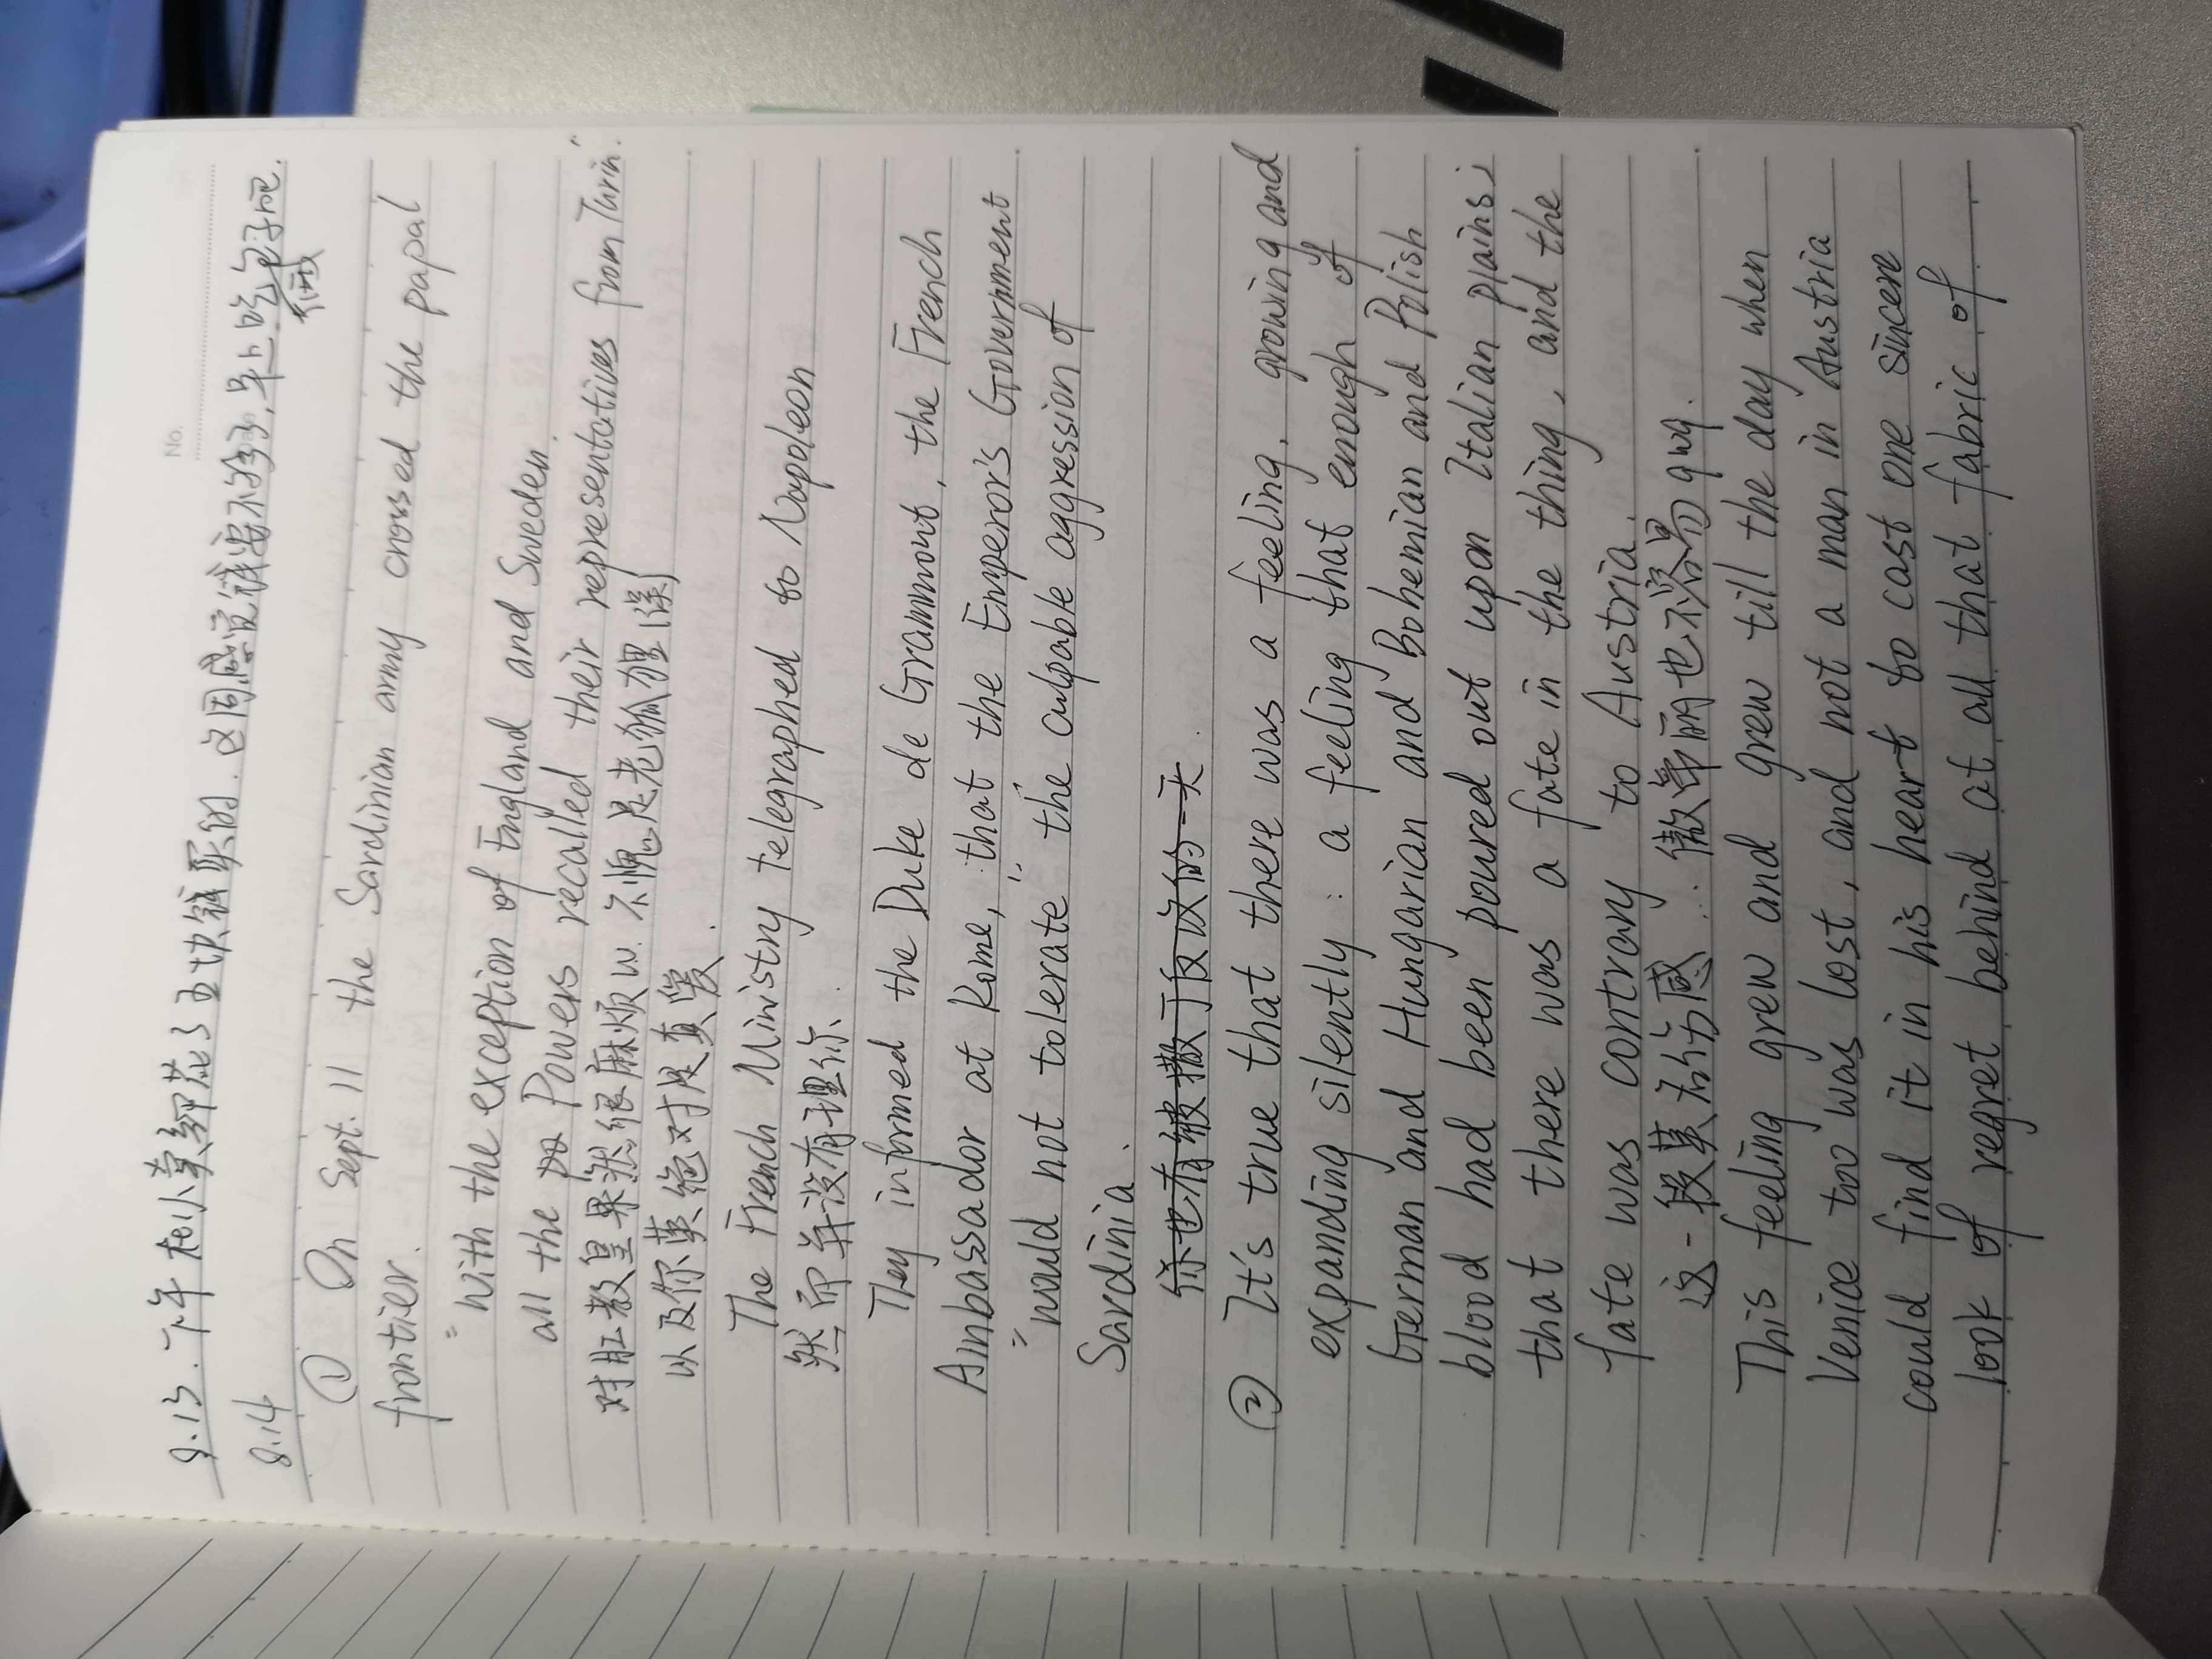 No.
8.13. 下午在小卖部花了五块钱买的. 这周感觉钱要不够了, 早上吃包子吧.
8.14
① On Sept. 11 the Sardinian army crossed the papal
frontier.
"With the exception of England and Sweden.
all the po Powers recalled their representatives from Turin."
对肛教皇果然很麻烦w. 不愧是老狐狸(误)
以及你英绝对是真爱.
The French Ministry telegraphed to Napoleon
然而并没有理你.
They informed the Duke de Grammont, the French
Ambassador at Rome, that the Emperor's Government
"would not tolerate" the culpable aggression of
Sardinia.
你也有被撒丁反攻的一天.
② It's true that there was a feeling, growing and
expanding silently: a feeling that enough of
German and Hungarian and Bohemian and Polish
blood had been poured out upon Italian plains;
that there was a fate in the thing, and the
fate was contrary to Austria.
这一段莫名伤感... 傲帝丽也不容易qwq.
This feeling grew and grew till the day when
Venice too was lost, and not a man in Austria
could find it in his heart to cast one sincere
look of regret behind at all that fabric of